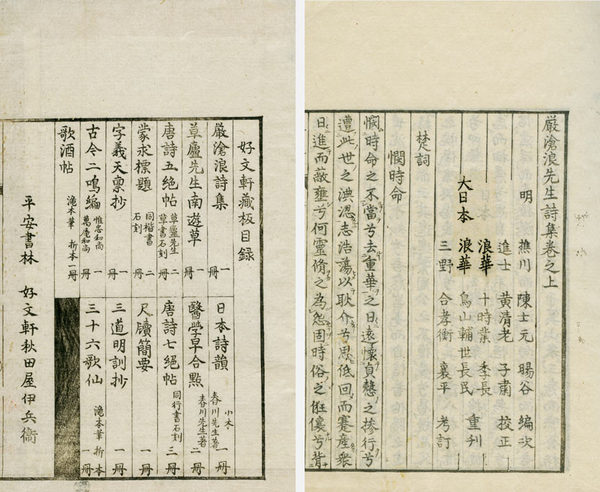 嚴滄浪先生詩集卷之上
明 樵川 陳士元 暘谷 編次
進士 黄清老 子肅 校正
浪華 十時業 季長
大日本 浪華 鳥山輔世長民 重刋
三野 合孝衡 襄平 考訂
楚詞
憫時命
憫時命之不當兮去重華之日遠懷貞慤之操行兮
遭此世之淟涊志浩蕩以耿介兮思低回而蹇産衆
日進而蔽壅兮何靈脩之為怨固時俗之
兮背
好文軒藏板目録
嚴滄浪詩集 一冊
草廬先生南遊草 一冊
唐詩五絶帖 草廬先生草書石刻 二冊
蒙求標題 同楷書石刻 二冊
字義天禀抄 一冊
古今二鳴編 惟忠和尚 萬庵和尚 二冊
歌酒帖 滝本筆 折本一冊
日本詩韻 小本 春川先生著 一冊
醫學早合點 春川先生著 三冊
唐詩七絶帖 同行書石刻 二冊
尺牘簡要 一冊
三道明訓抄 一冊
三十六歌仙 滝本筆 折本一冊
平安書林 好文軒秋田屋伊兵衛